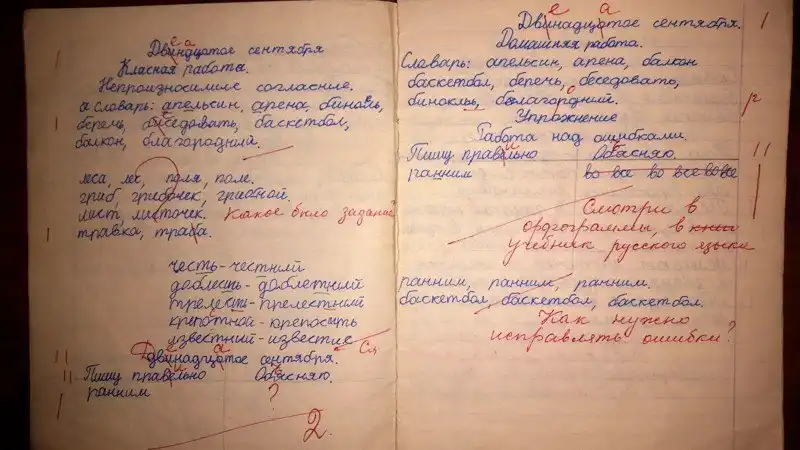 Двинадцотое сентября
Класная работа.
Непроизносимие согласние.
а словарь: апельсин, арена, бинокль,
беречь, беседовать, баскетбол,
балкон, благародний.
леса, лес, поля, поле.
гриб, грибочек, грибной.
лист, листочек. Какое было задание?
травка, трава.
честь - честний
доблесть - доблетний
прелесть - прелестний
крепотной - крепость
известний - известие
Ся
Двинадцотое сентября.
Пишу правельно Обясняю.
ранним ?
2.
Двинадцотое сентября.
Домашняя работа.
Словарь: апельсин, арена, балкон
баскетбол, беречь, беседовать,
бинокль, благардний.
Упражнение
Работа над ошибками.
Пишу правельно Обясняю.
ранним во все во все во все
Смотри в
орфограммы, в книг
учебник русского языка
ранним, ранним, ранним.
баскетбол, баскетбол, баскетбол.
Как нужно
исправлять ошибки?